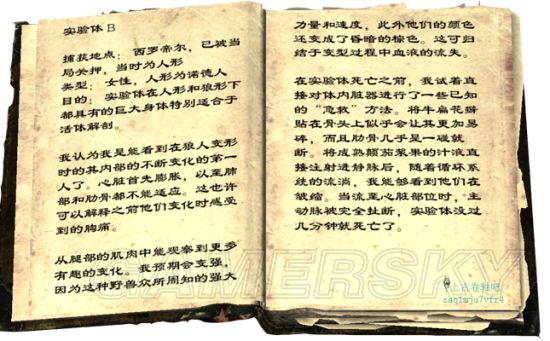 实验体 B
捕获地点：西罗帝尔，已被当
局关押，当时为人形
类型：女性，人形为诺德人
目的：实验体在人形和狼形下
都具有的巨大身体特别适合于
活体解剖。
我认为我是能看到在狼人变形
时的其内部的不断变化的第一
人了。心脏首先膨胀，以至肺
部和肋骨都不能适应。这也许
可以解释之前他们变化时感受
到的胸痛。
从腿部的肌肉中能观察到更多
有趣的变化。我预期会变强，
因为这种野兽众所周知的强大
力量和速度，此外他们的颜色
还变成了昏暗的棕色。这可归
结于变型过程中血液的流失。
在实验体死亡之前，我试着直
接对体内脏器进行了一些已知
的“急救”方法。将牛扁花瓣
贴在骨头上似乎会让其更加易
碎，而且肋骨几乎是一碰就
断。将成熟颠茄浆果的汁液直
接注射进静脉后，随着循环系
统的流淌，我能够看到他们在
皱缩。当流至心脏部位时，主
动脉被完全扯断，实验体没过
几分钟就死亡了。
GAMERSKY
上古卷轴吧
zaq1mju7vfr4